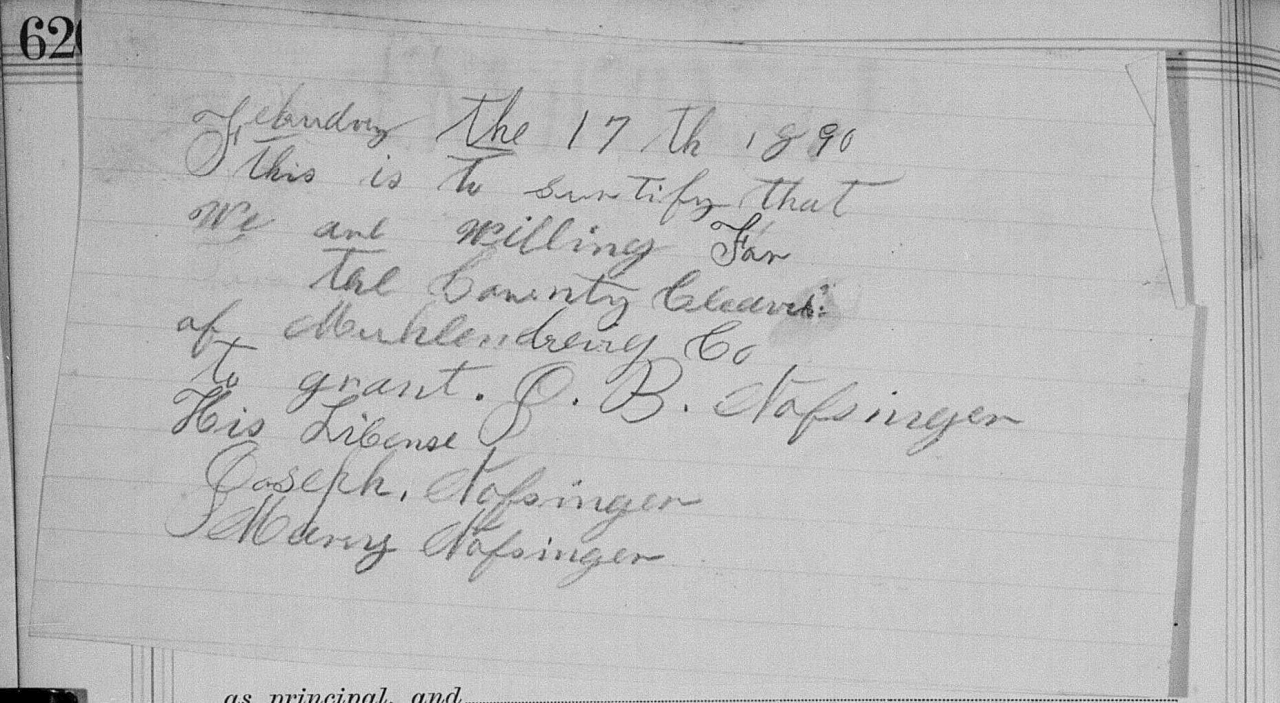 620
Febuary the 17 th 1890
this is to surtify that
We are willing For
the Counnty Cleark
of Muhlendreirg Co
to grant. J. B. Nofsinger
His Libense
Joseph, Nofsinger
Marry Nofsinger
as principal, and